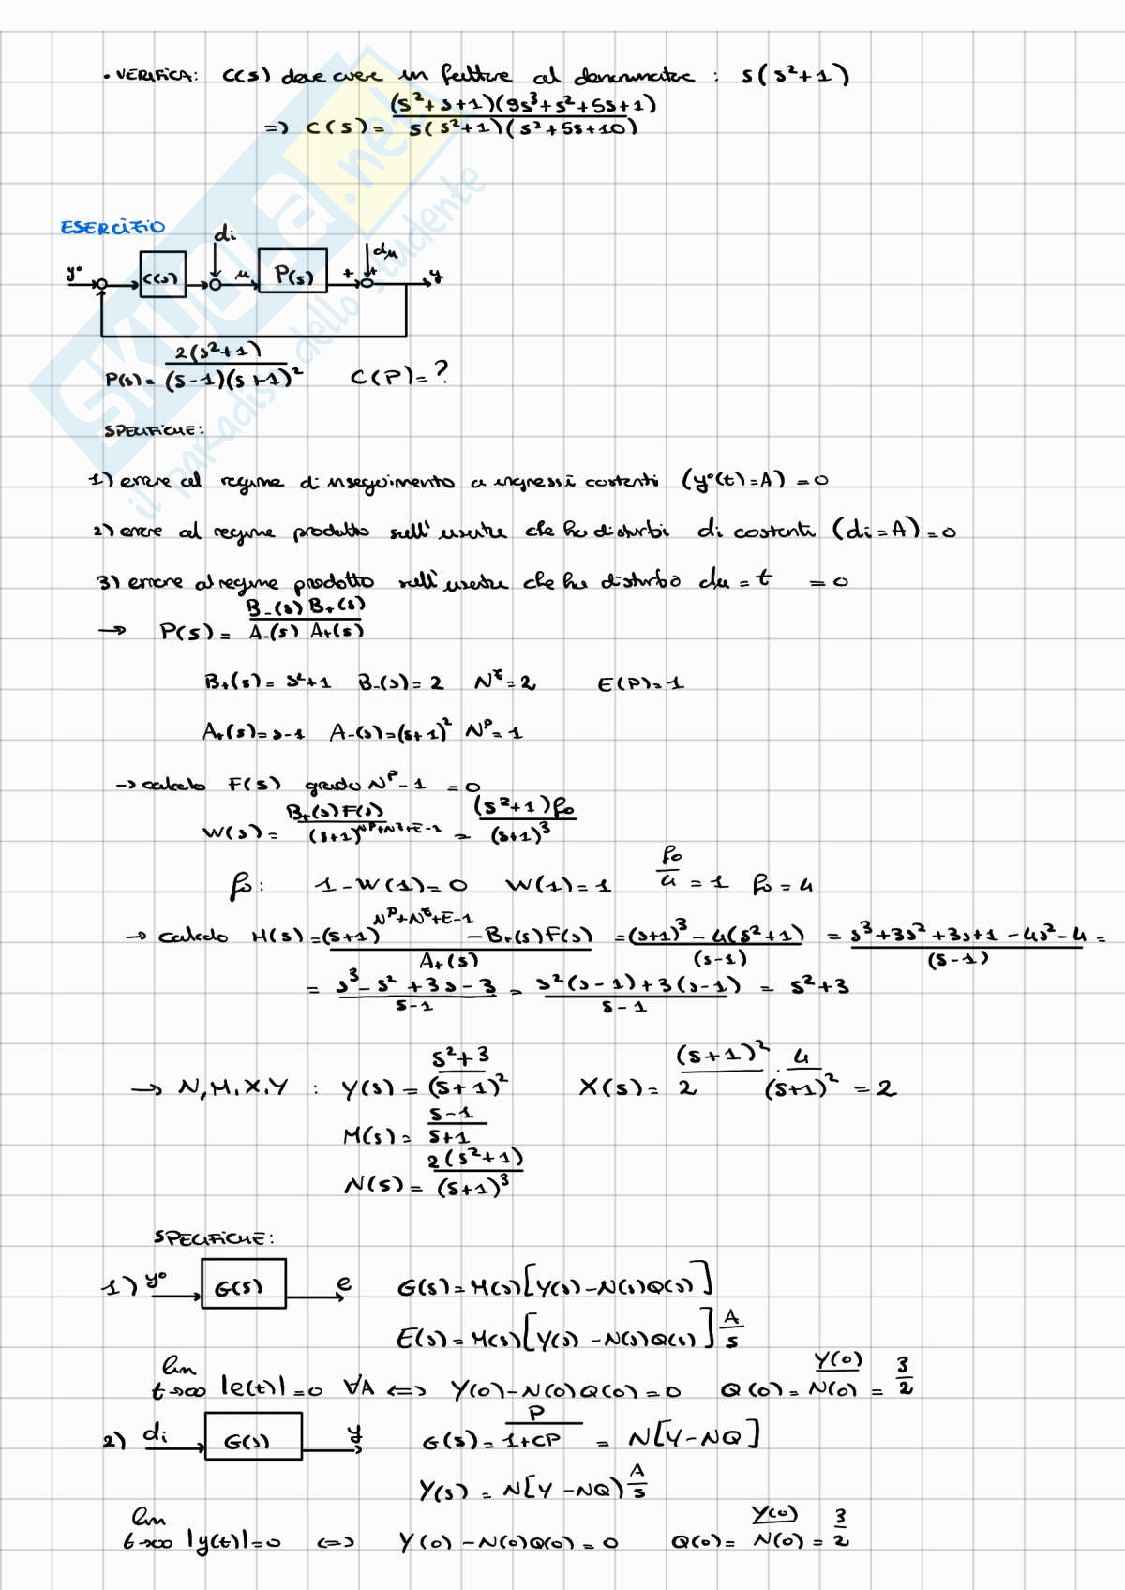 • VERIFICA: C(s) deve avere un fattore al denominatore : s(s²+1)
=> C(s) = (s²+s+1)(9s³+s²+5s+1) / s(s²+1)(s²+5s+10)
ESERCIZIO
di
du
y° C(s) u P(s) + + y
P(s) = 2(s²+1) / (s-1)(s+1)² C(P)=?
SPECIFICHE:
1) errore al regime di inseguimento a ingressi costanti (y°(t)=A) = 0
2) errore al regime prodotto sull'uscita che ha disturbi di costanti (di=A) = 0
3) errore al regime prodotto sull'uscita che ha disturbo du = t = 0
→ P(s) = B-(s) B+(s) / A-(s) A+(s)
B+(s) = s²+1 B-(s) = 2 N^z = 2 E(P) = 1
A+(s) = s-1 A-(s) = (s+1)² N^P = 1
→ calcolo F(s) grado N^P-1 = 0
W(s) = B+(s)F(s) / (s+1)^(N^P+N^z+E-1) = (s²+1)f0 / (s+1)³
f0: 1-W(1)=0 W(1)=1 f0/4 = 1 f0 = 4
→ calcolo H(s) = (s+1)^(N^P+N^z+E-1) - B+(s)F(s) / A+(s) = (s+1)³ - 4(s²+1) / (s-1) = s³+3s²+3s+1-4s²-4 / (s-1) =
= s³-s²+3s-3 / s-1 = s²(s-1)+3(s-1) / s-1 = s²+3
→ N, M, X, Y : Y(s) = s²+3 / (s+1)² X(s) = (s+1)² / 2 · 4 / (s+1)² = 2
M(s) = s-1 / s+1
N(s) = 2(s²+1) / (s+1)³
SPECIFICHE:
1) y° G(s) e G(s) = M(s)[Y(s)-N(s)Q(s)]
E(s) = M(s)[Y(s)-N(s)Q(s)] A/s
lim t→∞ |e(t)|=0 ∀A <=> Y(0)-N(0)Q(0)=0 Q(0) = Y(0)/N(0) = 3/2
2) di G(s) y G(s) = P / 1+CP = N[Y-NQ]
Y(s) = N[Y-NQ) A/s
lim t→∞ |y(t)|=0 <=> Y(0)-N(0)Q(0)=0 Q(0) = Y(0)/N(0) = 3/2
SKUOLA.net
il paradiso dello studente